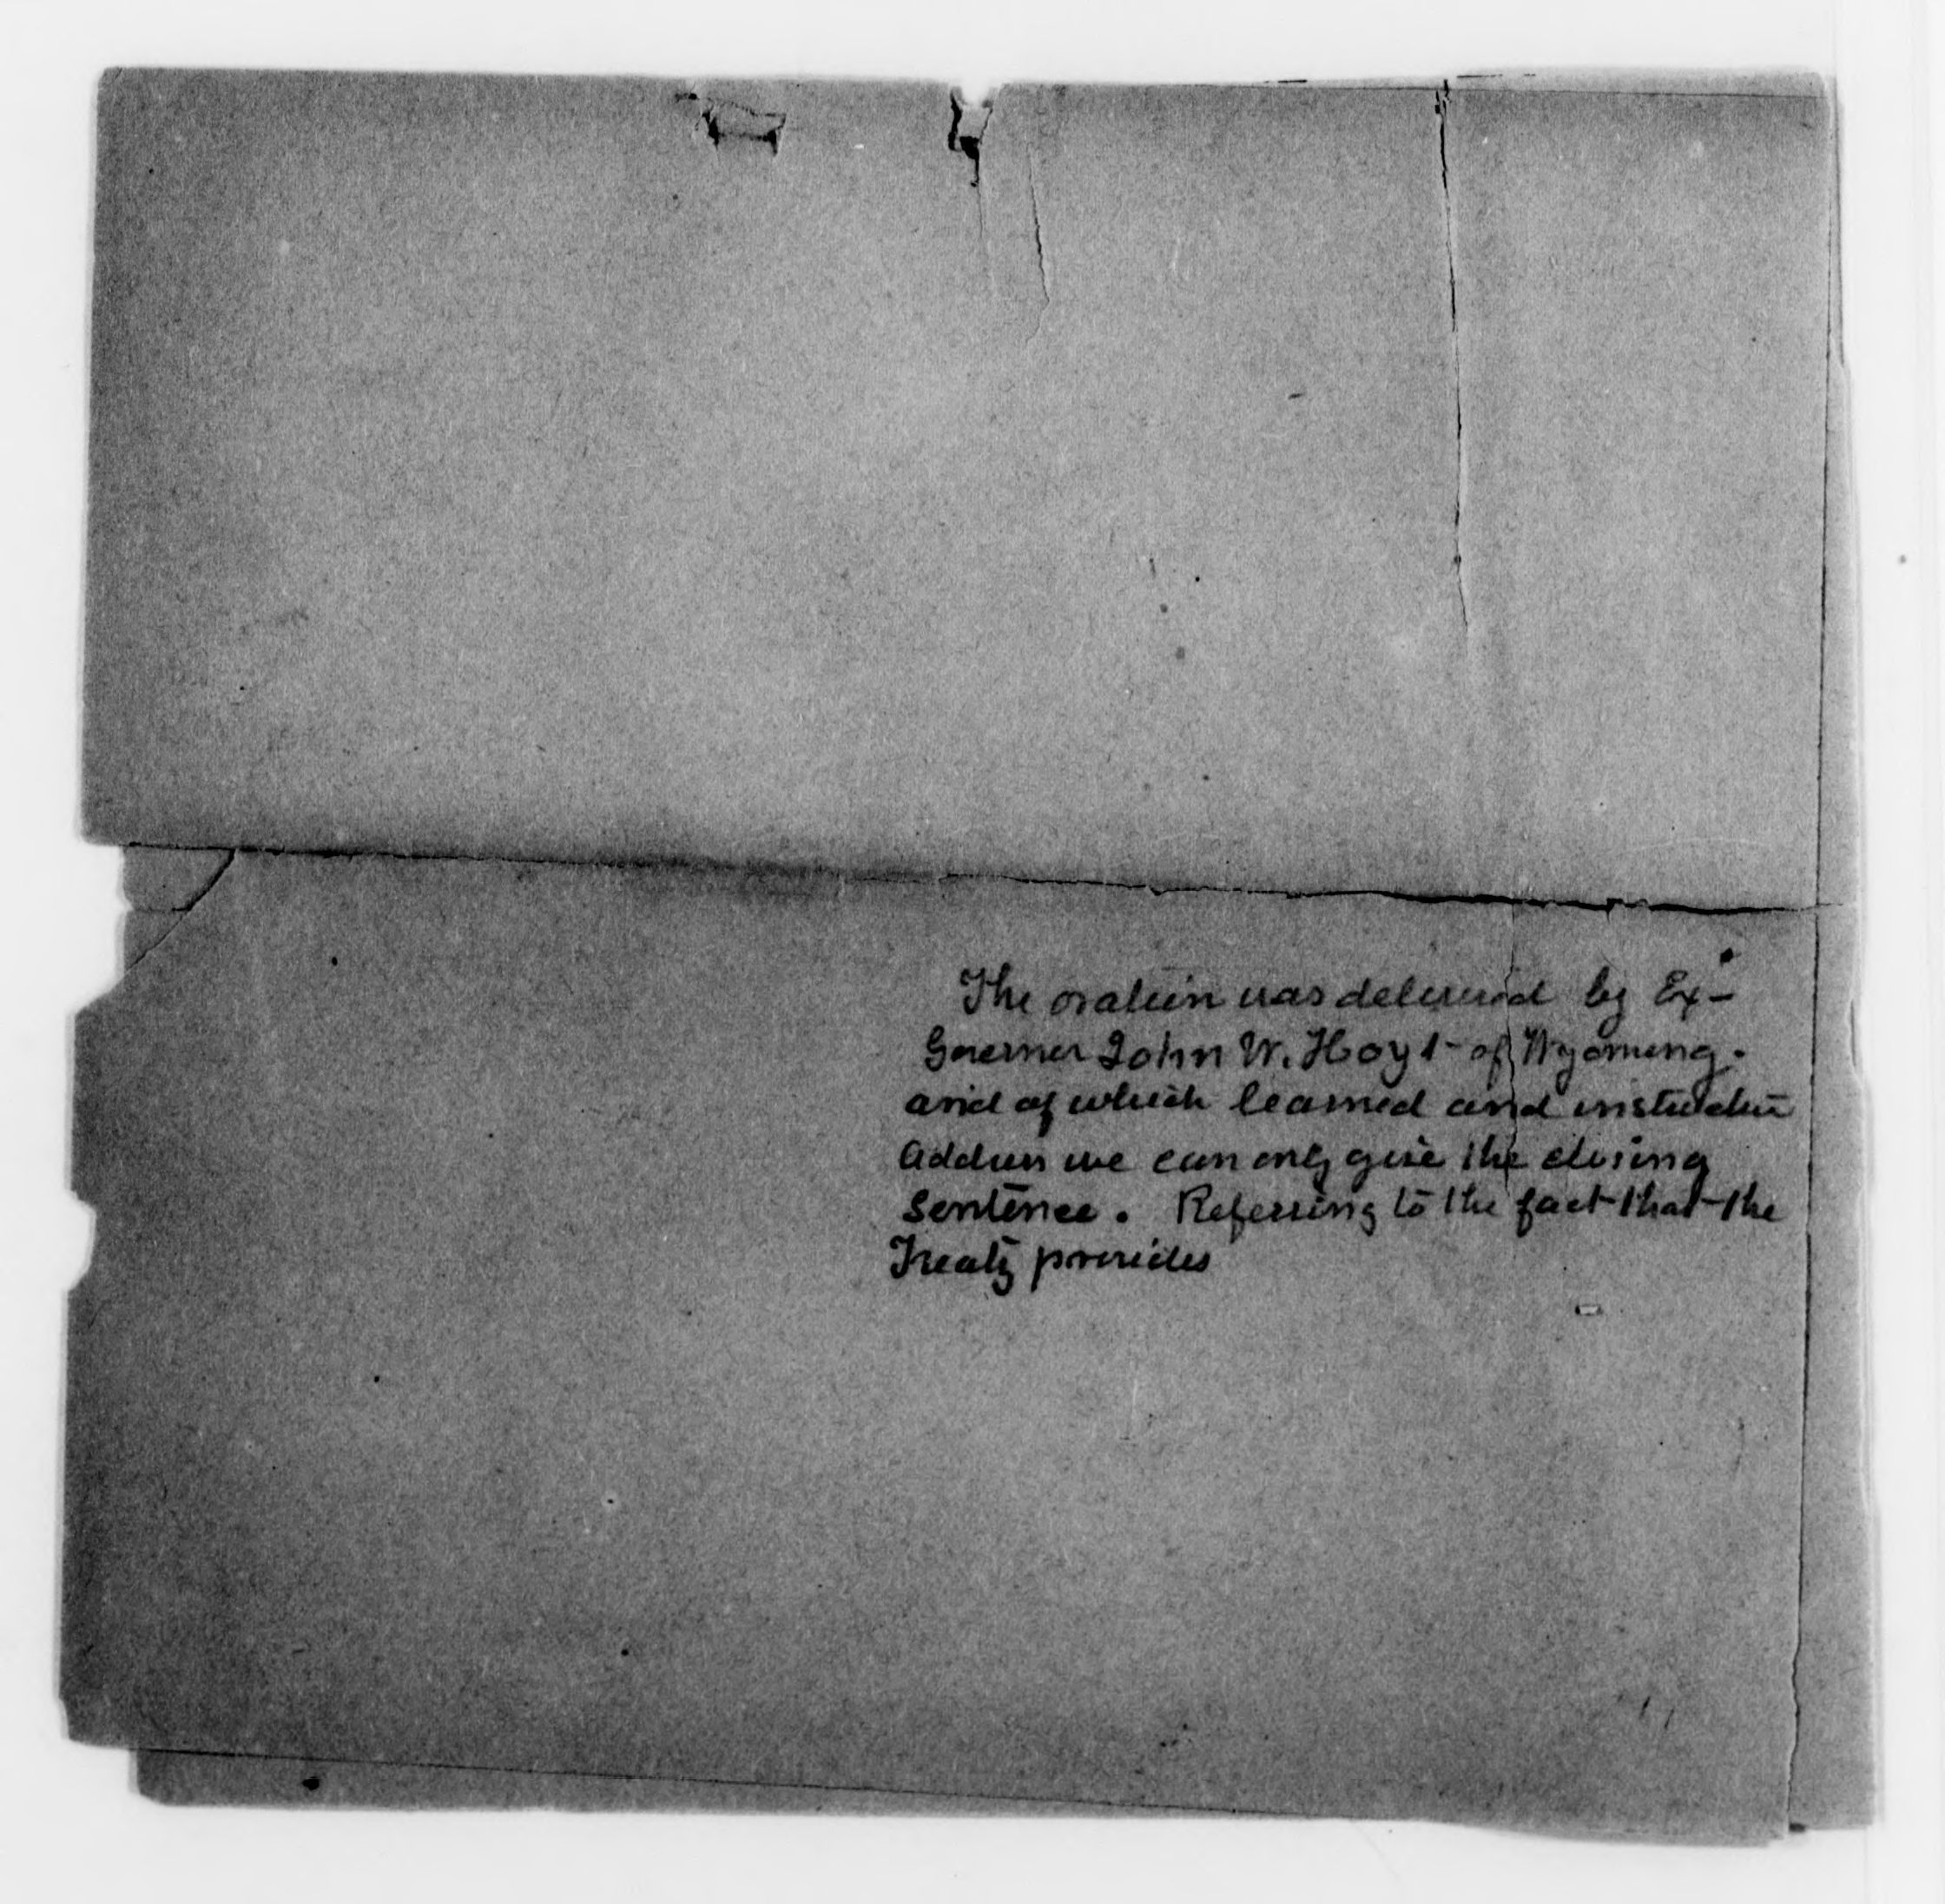 The oration was delivered by Ex-
Governor John W. Hoyt of Wyoming.
and of which learned and instructive
Address we can only give the closing
Sentence. Referring to the fact that the
Treaty provides